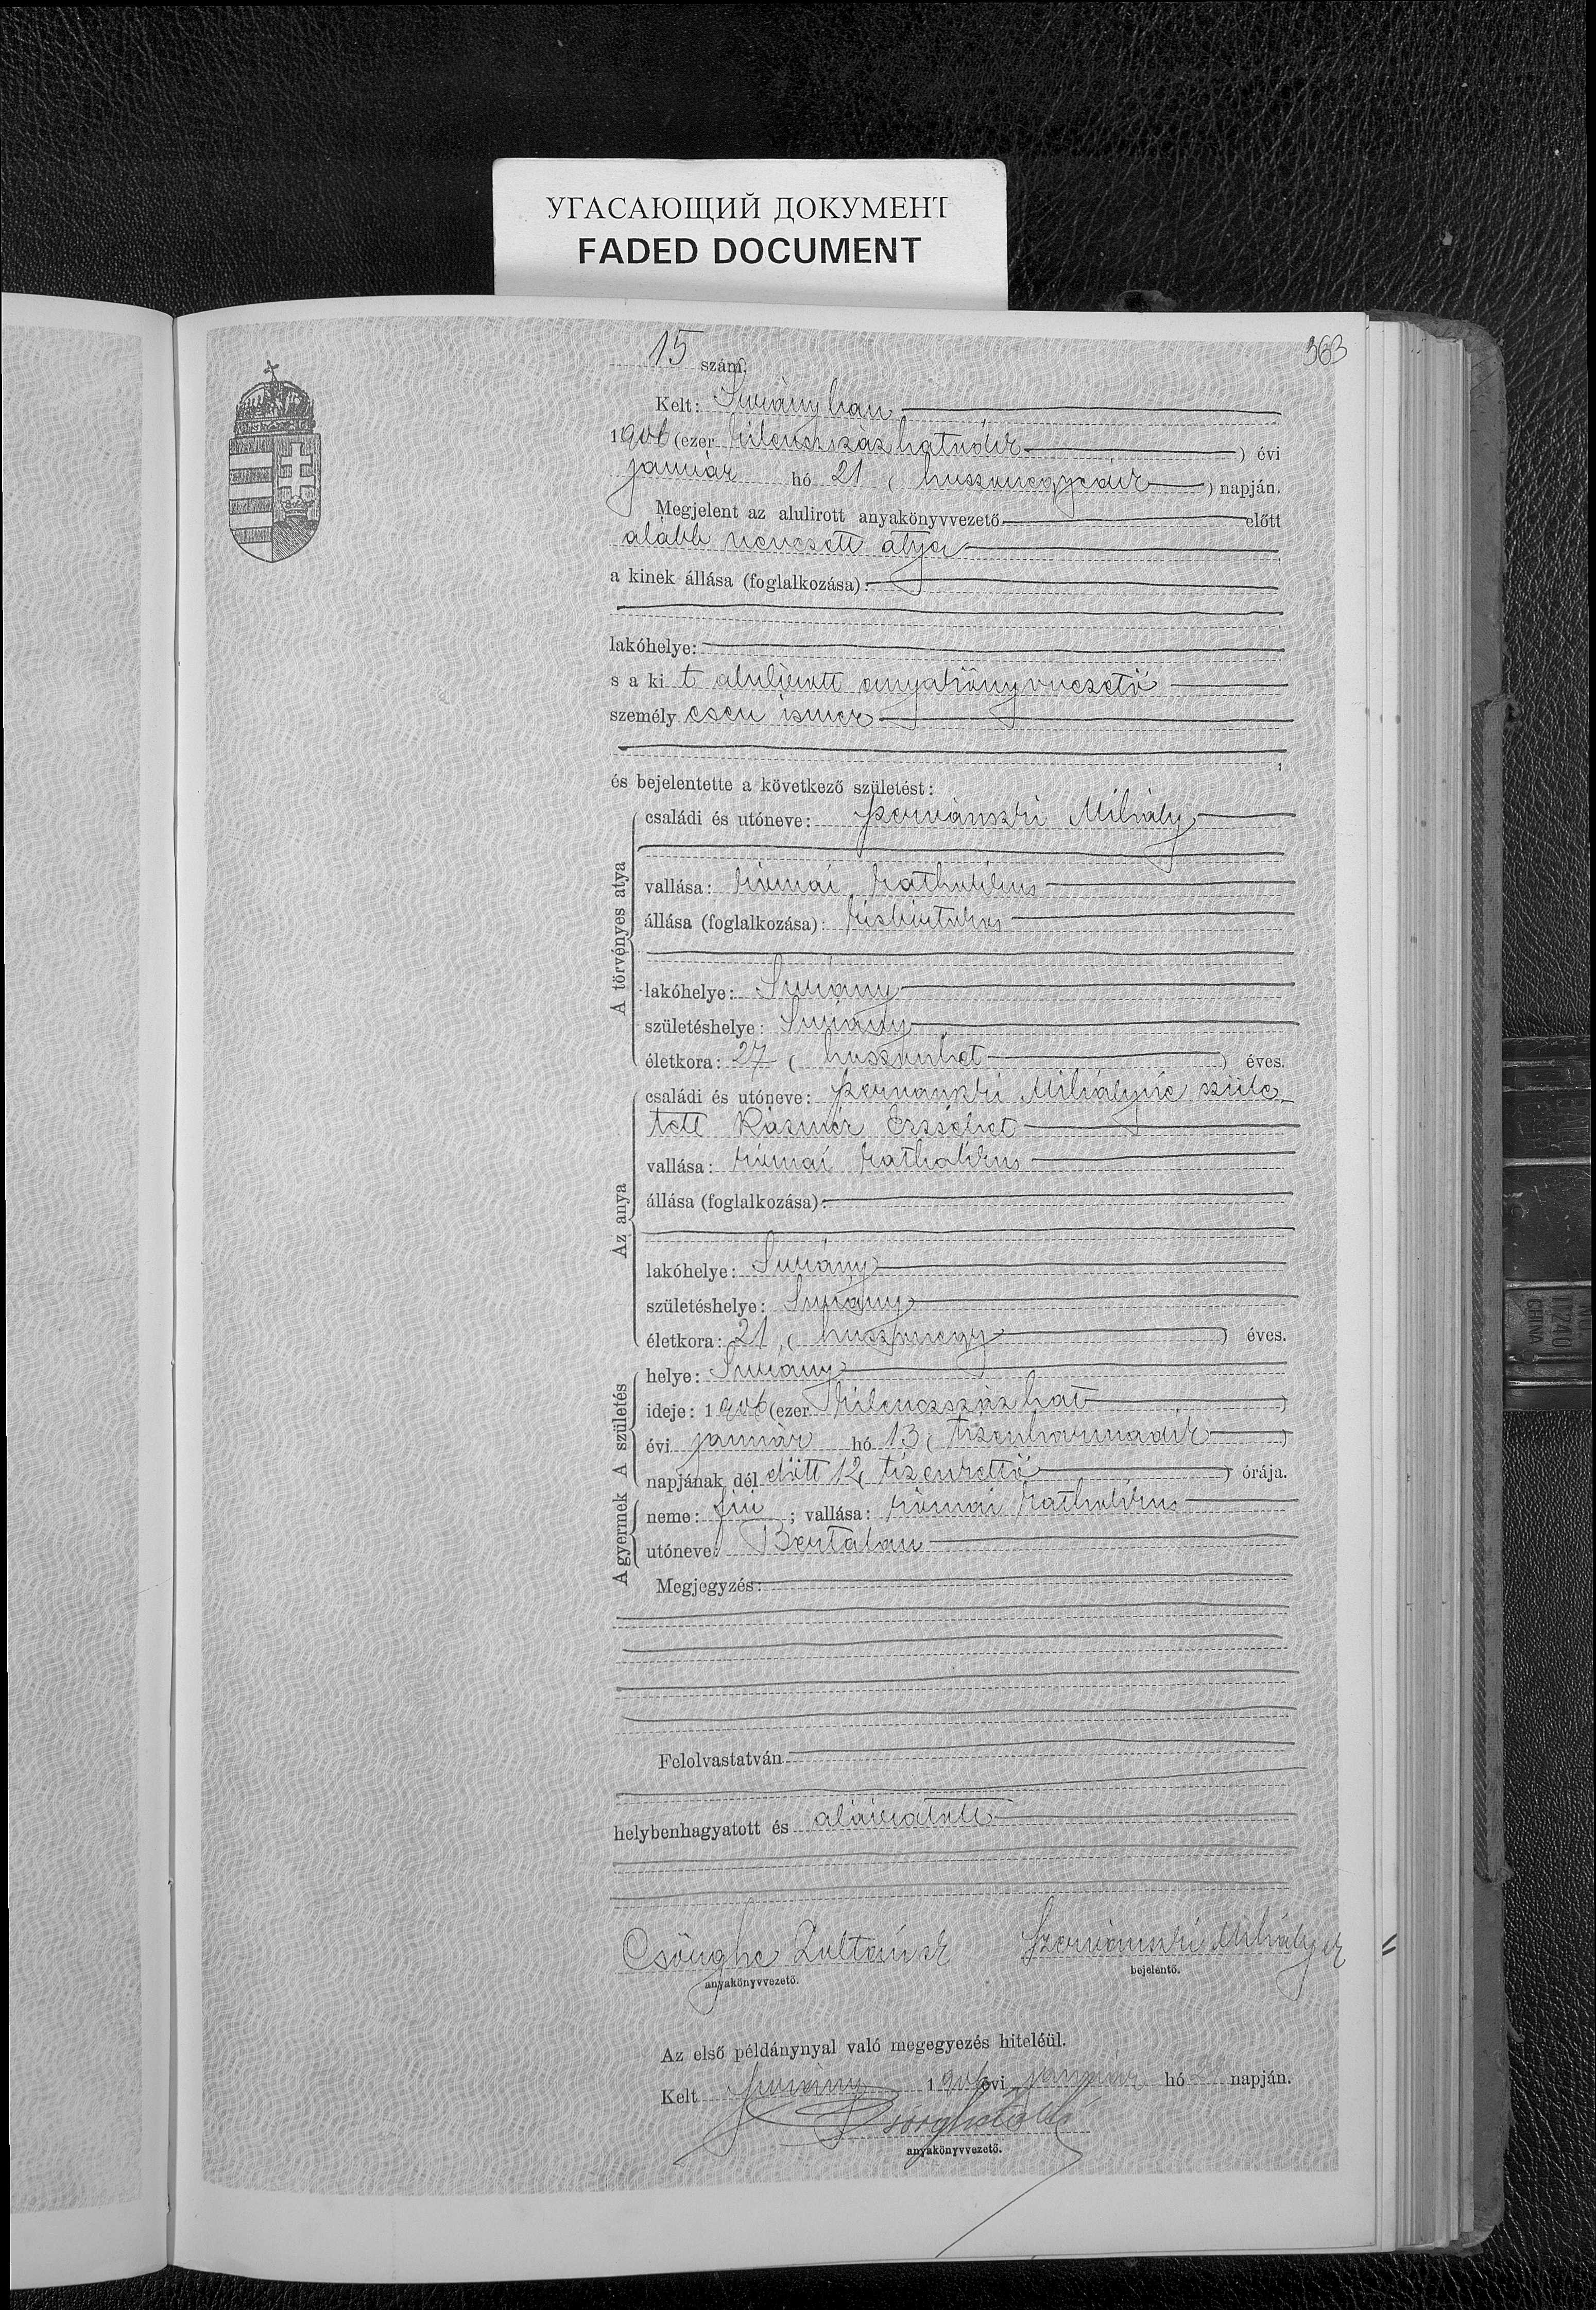 УГАСАЮЩИЙ ДОКУМЕНТ
FADED DOCUMENT
363
15 szám.
Kelt: Surányban
1906 (ezer kilenczszázhatodik) évi
január hó 21 (huszonegyedik) napján.
Megjelent az alulirott anyakönyvvezető előtt
alább nevezett atya
a kinek állása (foglalkozása):
lakóhelye:
s a kit alulirott anyakönyvvezető
személyesen ismer
és bejelentette a következő születést:
A törvényes atya
családi és utóneve: Szervánszki Mihály
vallása: római katholikus
állása (foglalkozása): kisbirtokos
lakóhelye: Surány
születéshelye: Surány
életkora: 27 (huszonhét) éves.
Az anya
családi és utóneve: Szervánszki Mihályné szüle-
tett Kázmér Erzsébet
vallása: római katholikus
állása (foglalkozása):
lakóhelye: Surány
születéshelye: Surány
életkora: 21 (huszonegy) éves.
A születés
helye: Surány
ideje: 1906 (ezer kilenczszázhat)
évi január hó 13 (tizenharmadik)
napjának délelőtt 12 (tizenkettő) órája.
A gyermek
neme: fiú; vallása: római katholikus
utóneve: Bertalan
Megjegyzés:
Felolvastatván
helybenhagyatott és aláiratott
Szervánszki Mihály sk
anyakönyvvezető.
bejelentő.
Az első példánynyal való megegyezés hiteléül.
Kelt Surány 1906 évi január hó napján.
anyakönyvvezető.